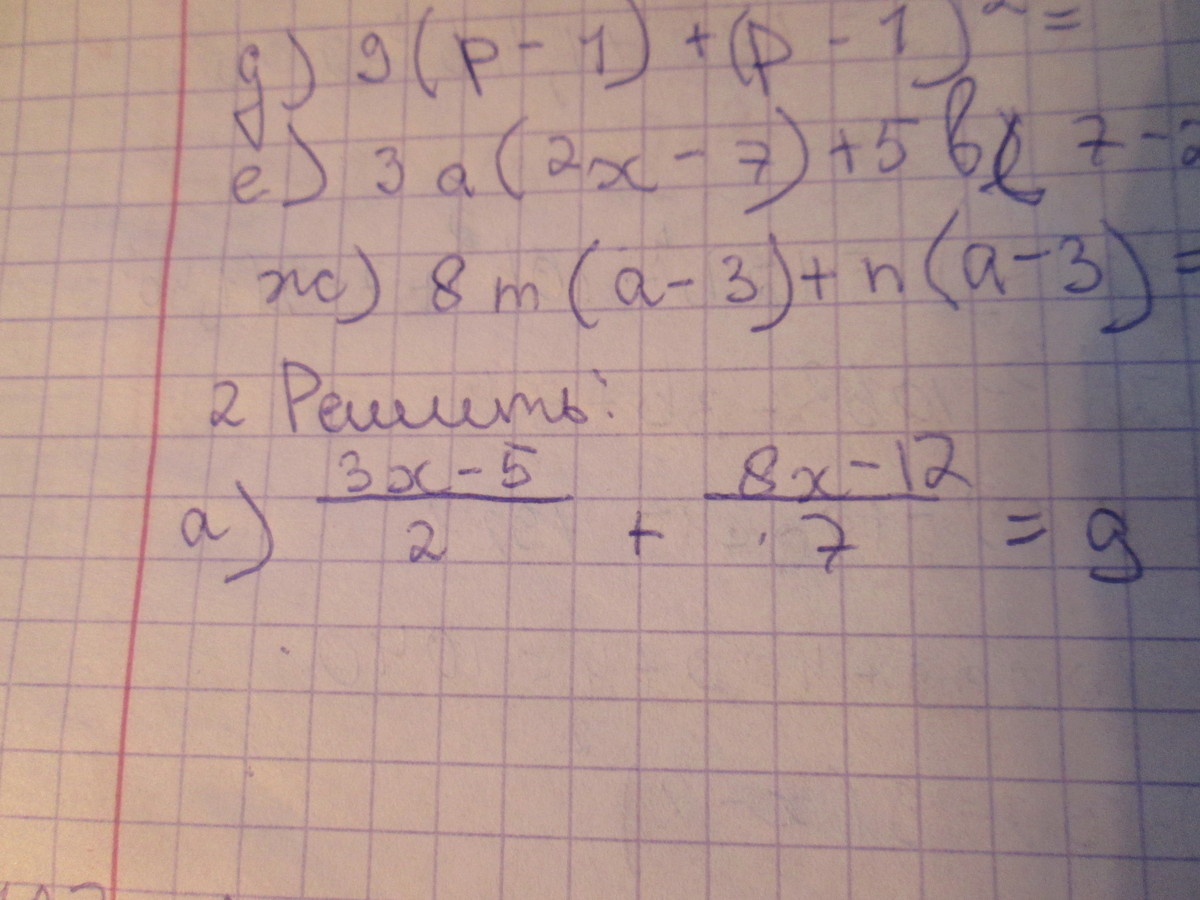 д) 9(p-1)+(p-1)²=
е) 3a(2x-7)+5b( 7-2
ж) 8m(a-3)+n(a-3)=
2 Решить:
а) (3x-5)/2 + (8x-12)/7 = 9